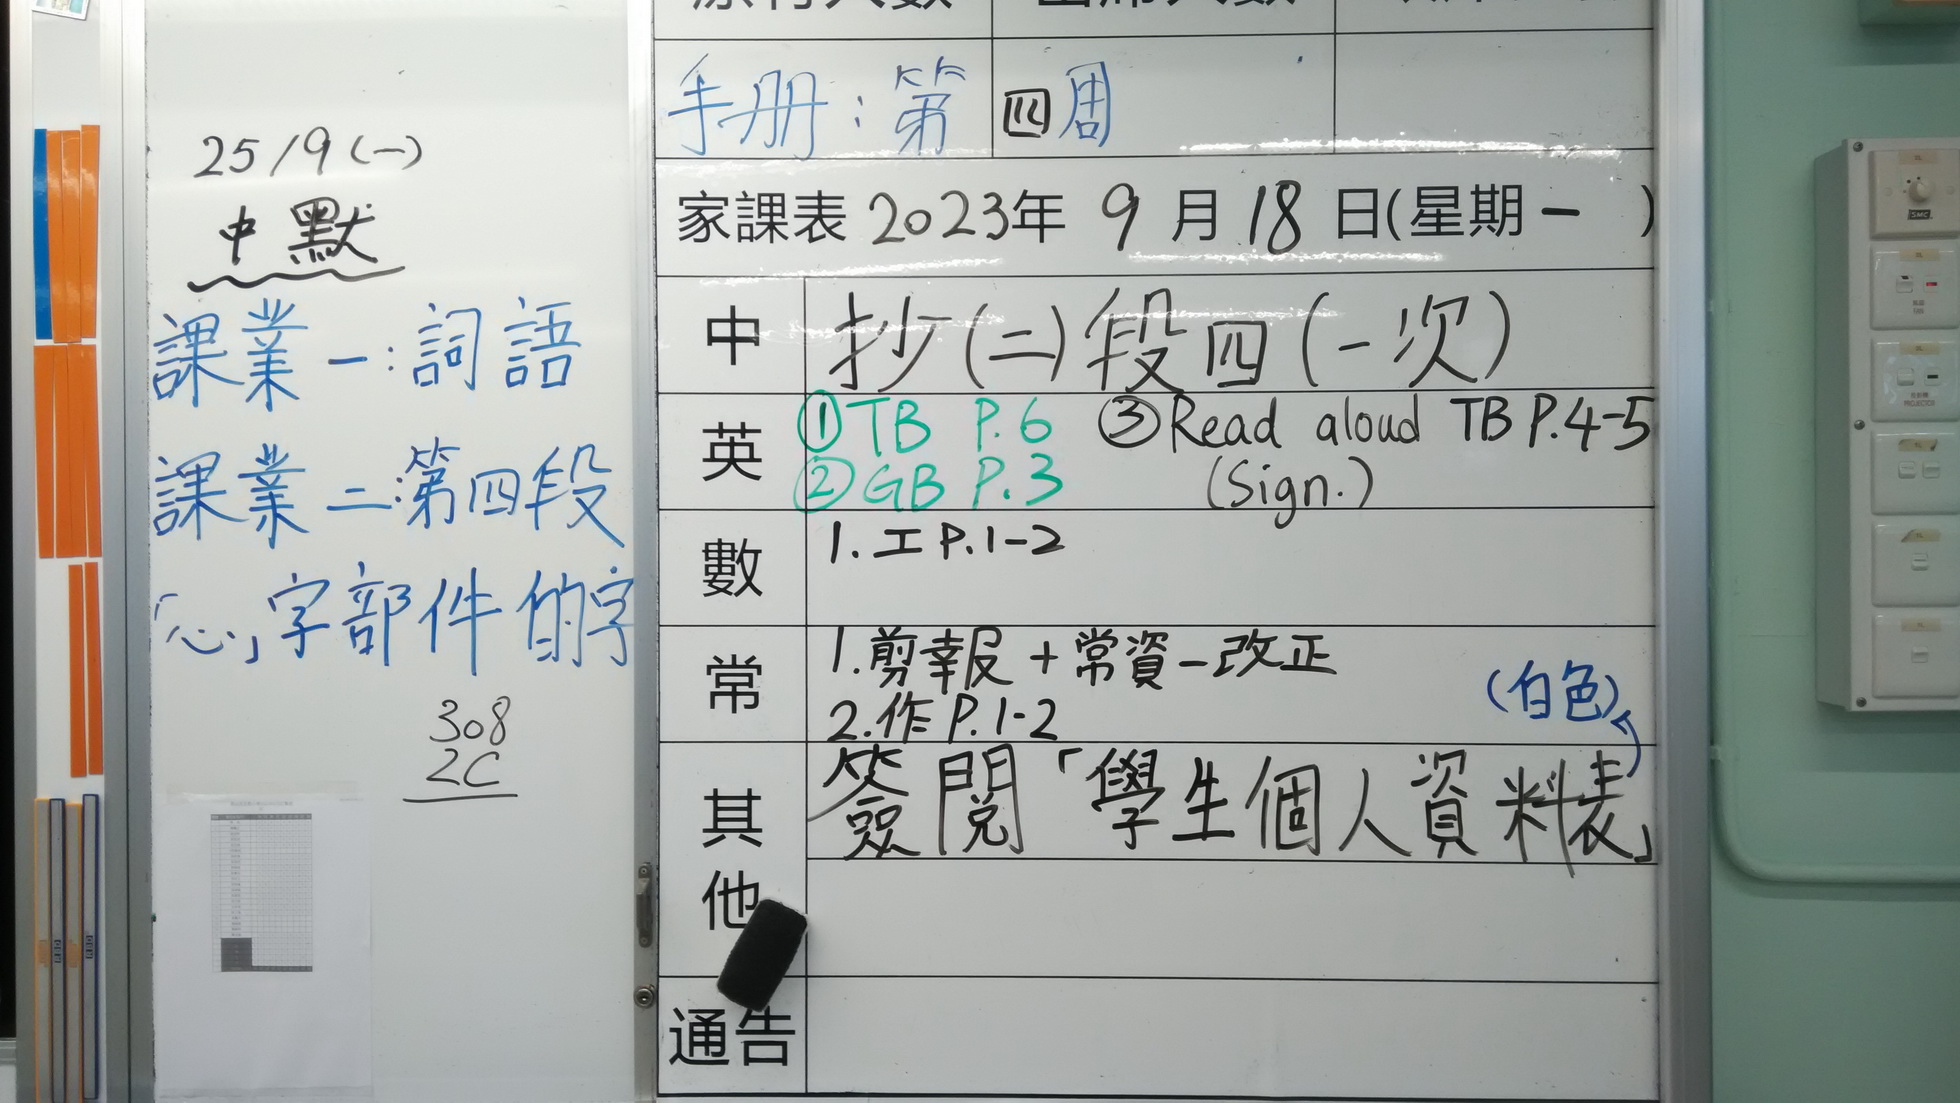 25/9(一)
中默
課業一:詞語
課業二:第四段
「心」字部件的字
308
2C
手册:第四周
家課表2023年9月18日(星期一 )
中 抄(二)段四(一次)
英 ①TB P.6 ③Read aloud TB P.4-5
②GB P.3 (Sign.)
數 1.工P.1-2
常 1.剪報+常資一改正
2.作P.1-2
(白色)
其他 簽閱「學生個人資料表」
通告